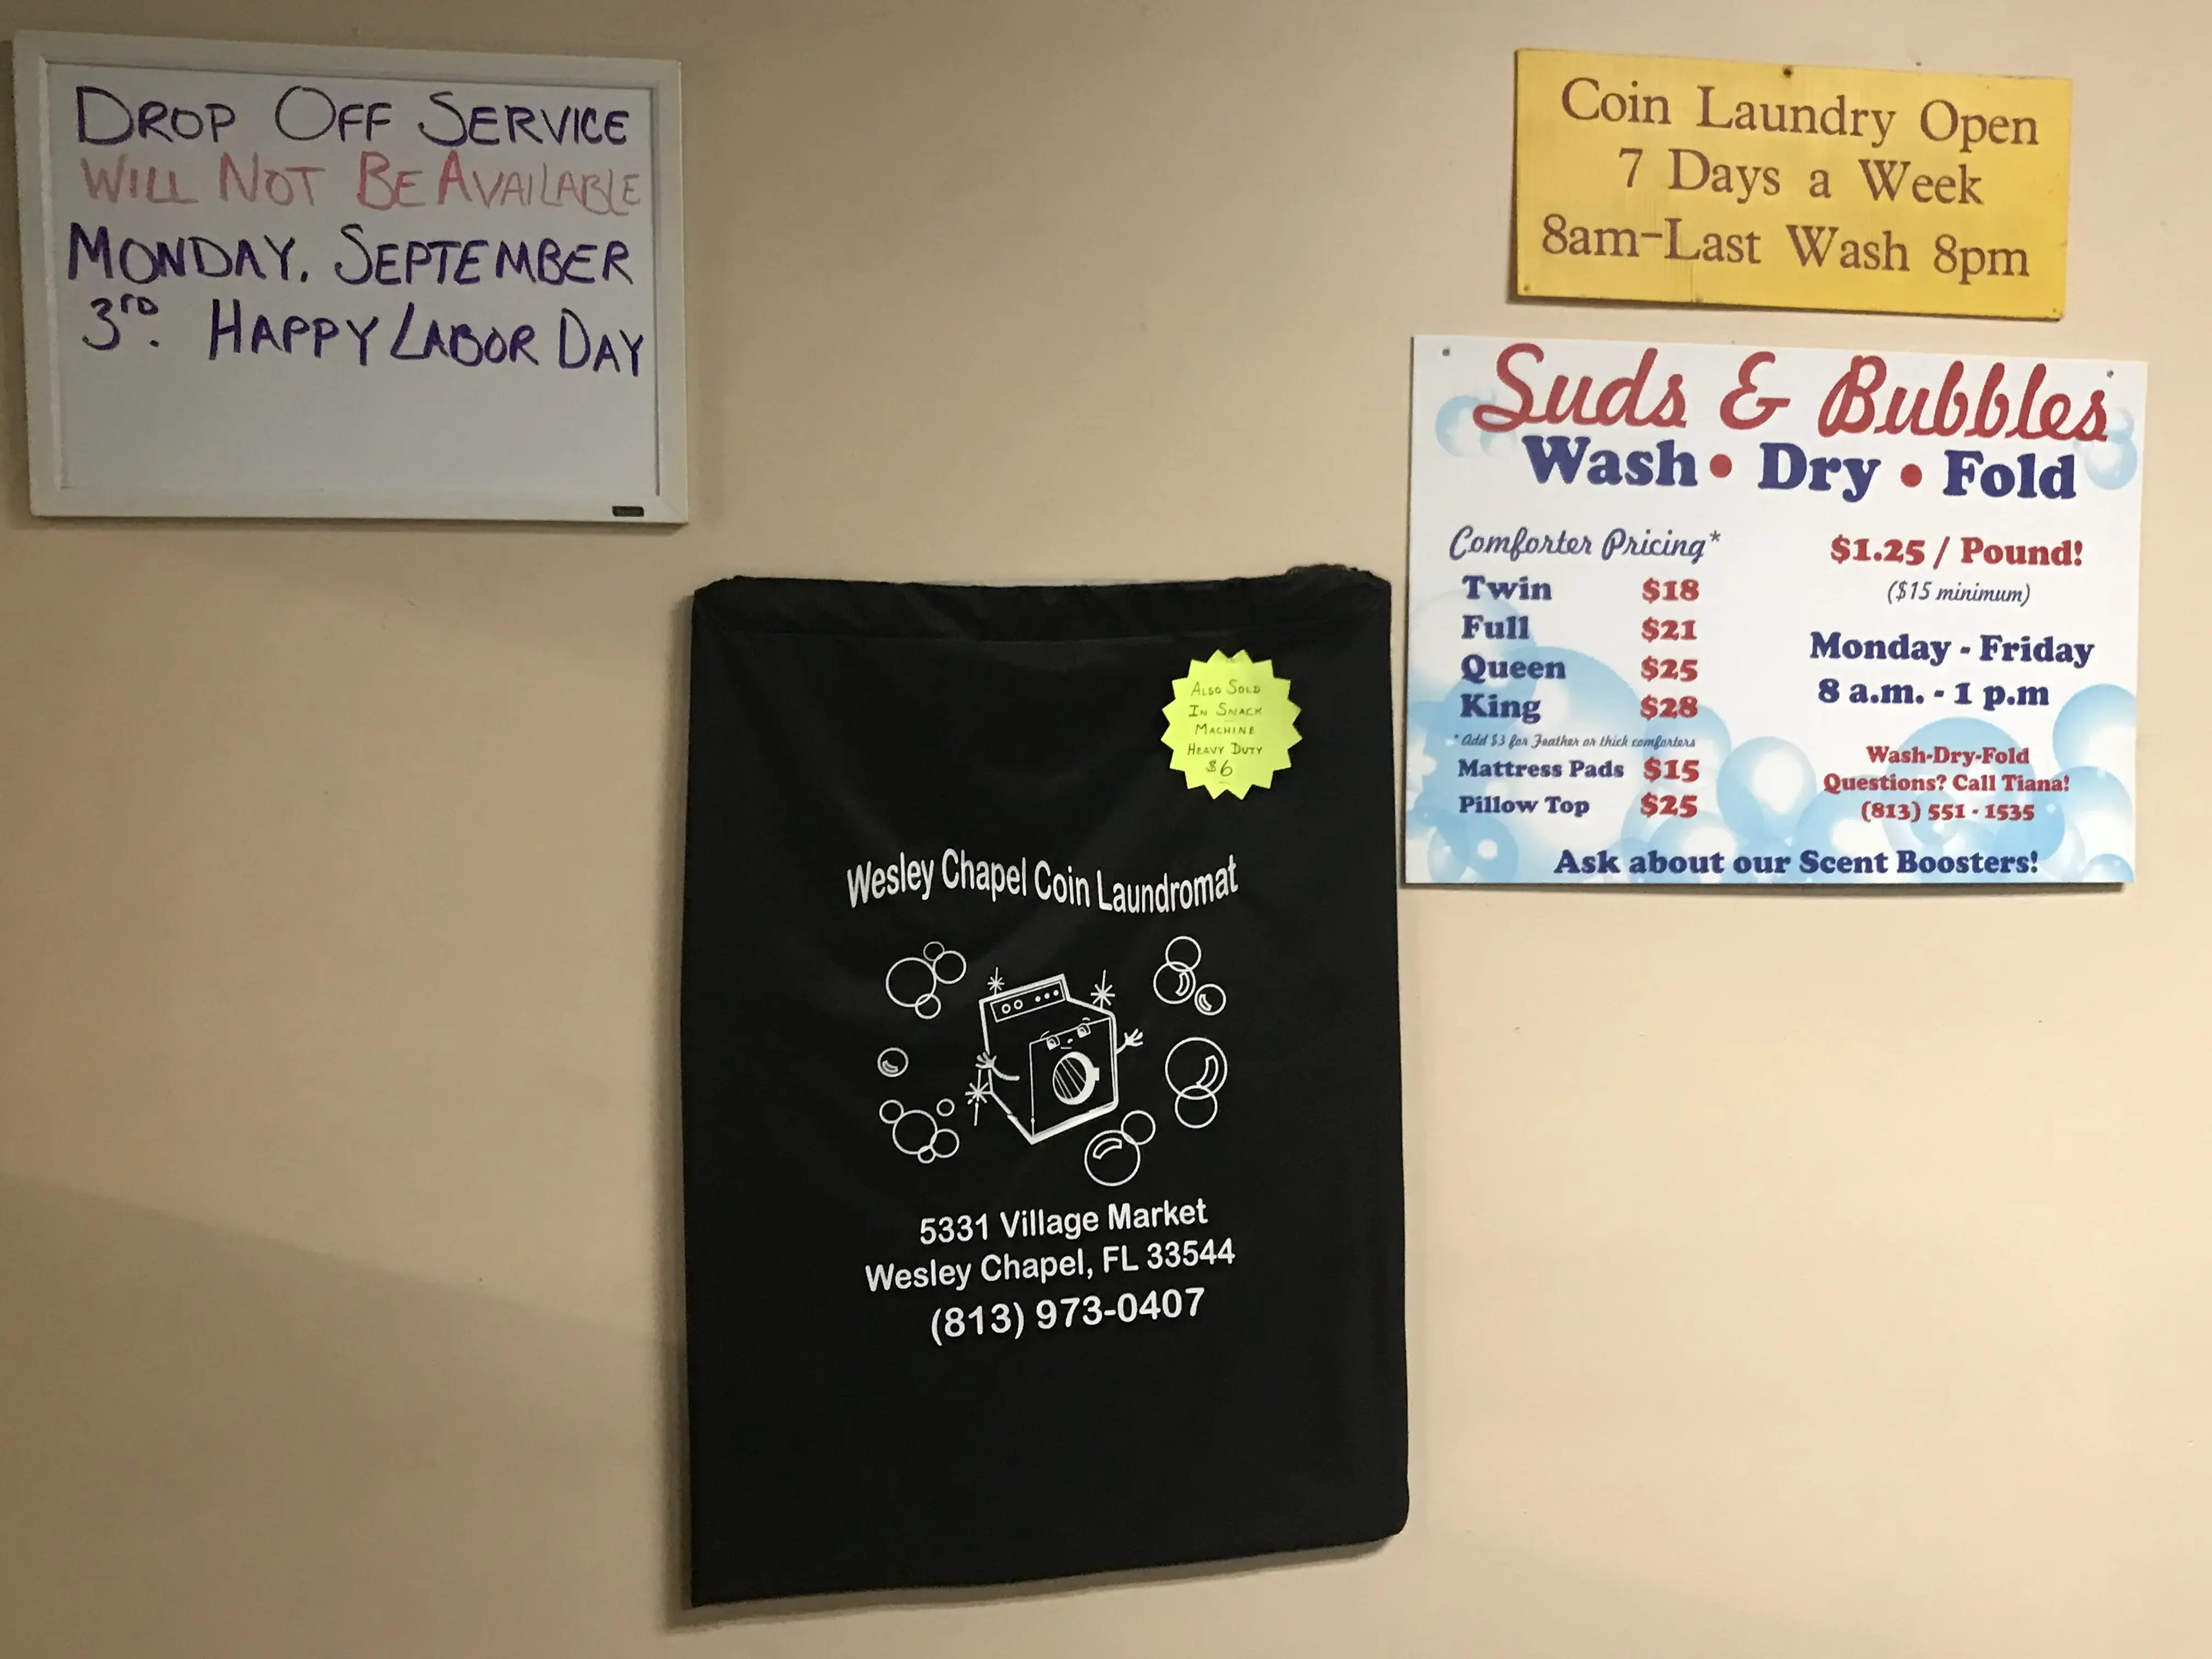 DROP OFF SERVICE
WILL NOT BE AVAILABLE
MONDAY. SEPTEMBER
3RD. HAPPY LABOR DAY
Coin Laundry Open
7 Days a Week
8am-Last Wash 8pm
Suds & Bubbles
Wash • Dry • Fold
Comforter Pricing*
Twin $18
Full $21
Queen $25
King $28
* Add $3 for Feather or thick comforters
Mattress Pads $15
Pillow Top $25
$1.25 / Pound!
($15 minimum)
Monday - Friday
8 a.m. - 1 p.m
Wash-Dry-Fold
Questions? Call Tiana!
(813) 551 - 1535
Ask about our Scent Boosters!
ALSO SOLD
IN SNACK
MACHINE
HEAVY DUTY
$6
Wesley Chapel Coin Laundromat
5331 Village Market
Wesley Chapel, FL 33544
(813) 973-0407